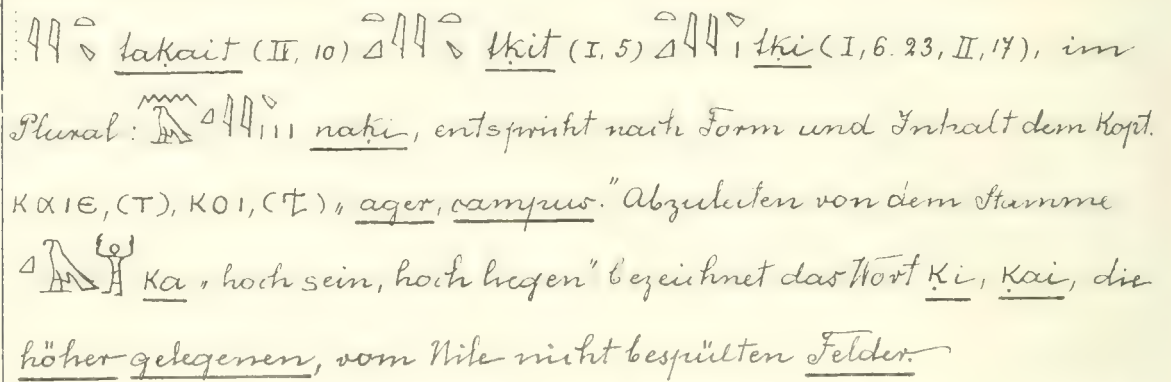 𓇌 takait (II, 10) 𓈎𓇌 tkit (I, 5) 𓈎𓇌 tki (I, 6. 23, II, 17), im
Plural: 𓈎𓇌 naki, entspricht nach Form und Inhalt dem Kopt.
ⲕⲁⲓⲉ, (ⲧ), ⲕⲟⲓ, (ϯ) „ager, campus." Abzuleiten von dem Stamme
𓈎𓄿𓀠 ḳa „hoch sein, hoch liegen" bezeichnet das Wort ḳi, ḳai, die
höher gelegenen, vom Nile nicht bespülten Felder.